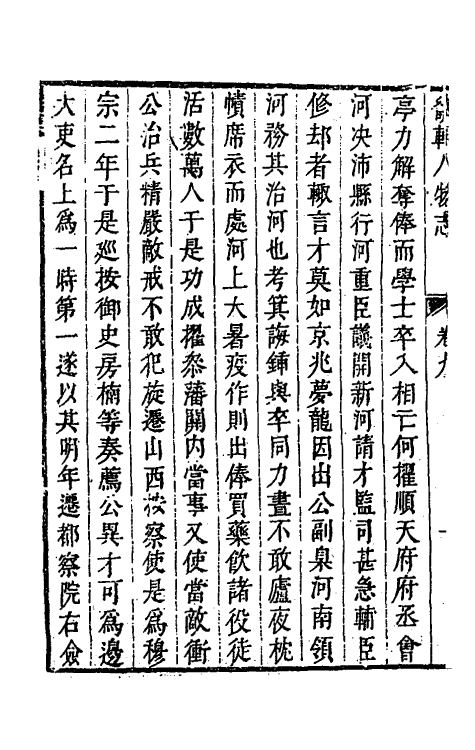 畿輔人物志
卷九
亭力解奪俸而學士卒入相亡何擢順天府府丞會
河决沛縣行河重臣議開新河請才監司甚急輔臣
修郄者輙言才莫如京兆夢龍因出公副臬河南領
河務其治河也考箕誨鍤與卒同力晝不敢廬夜枕
幘席衣而處河上大暑疫作則出俸買藥飲諸役徒
活數萬人于是功成擢叅藩關内當事又使當敵衝
公治兵精嚴敵戒不敢犯旋遷山西按察使是爲穆
宗二年于是廵按御史房楠等奏薦公異才可爲邊
大吏名上爲一時第一遂以其明年遷都察院右僉